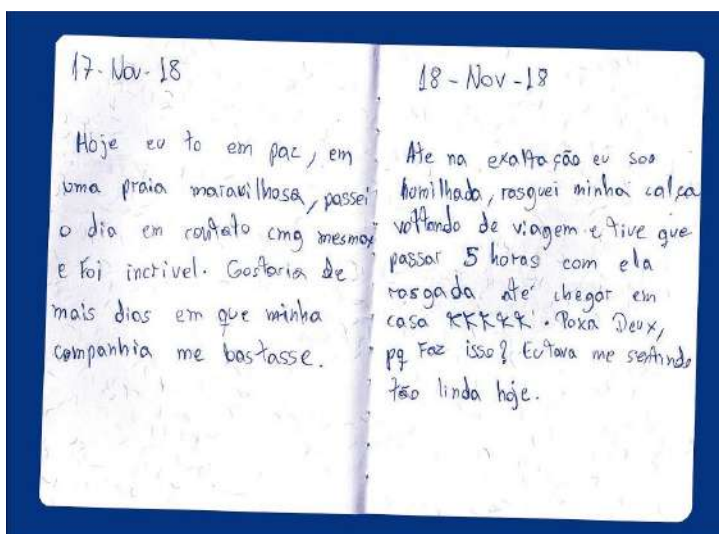 17-Nov-18
Hoje eu to em paz, em
uma praia maravilhosa, passei
o dia em contato cmg mesma
e foi incrivel. Gostaria de
mais dias em que minha
companhia me bastasse.
18-Nov-18
Ate na exaltação eu sou
humilhada, rasguei minha calça
voltando de viagem e tive que
passar 5 horas com ela
rasgada até chegar em
casa KKKKK. Poxa Deux,
pq faz isso? Eutava me sentindo
tão linda hoje.